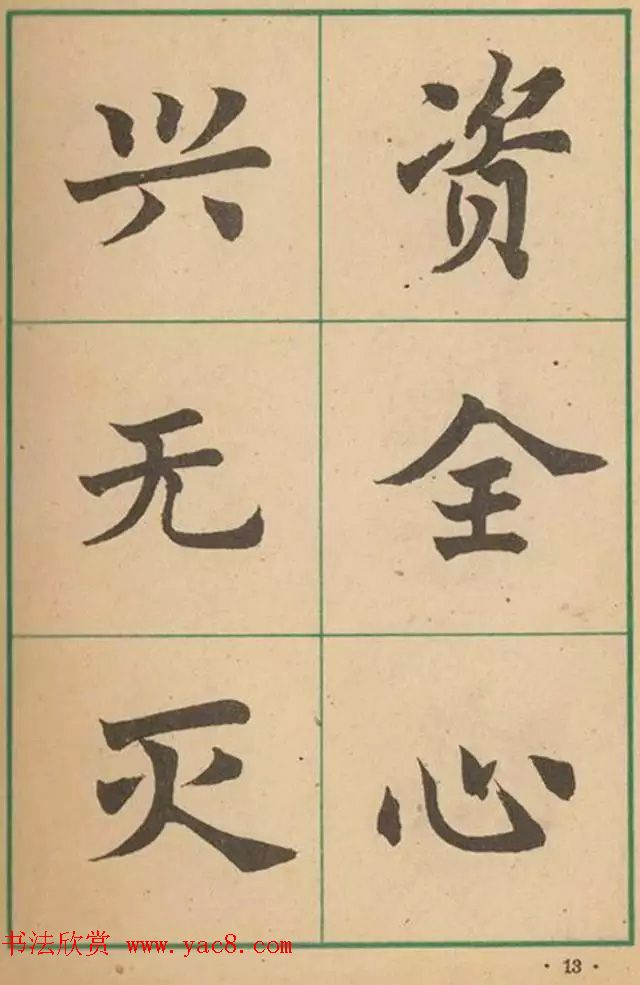 资全心
兴无灭
书法欣赏 www.yac8.com
· 13 ·